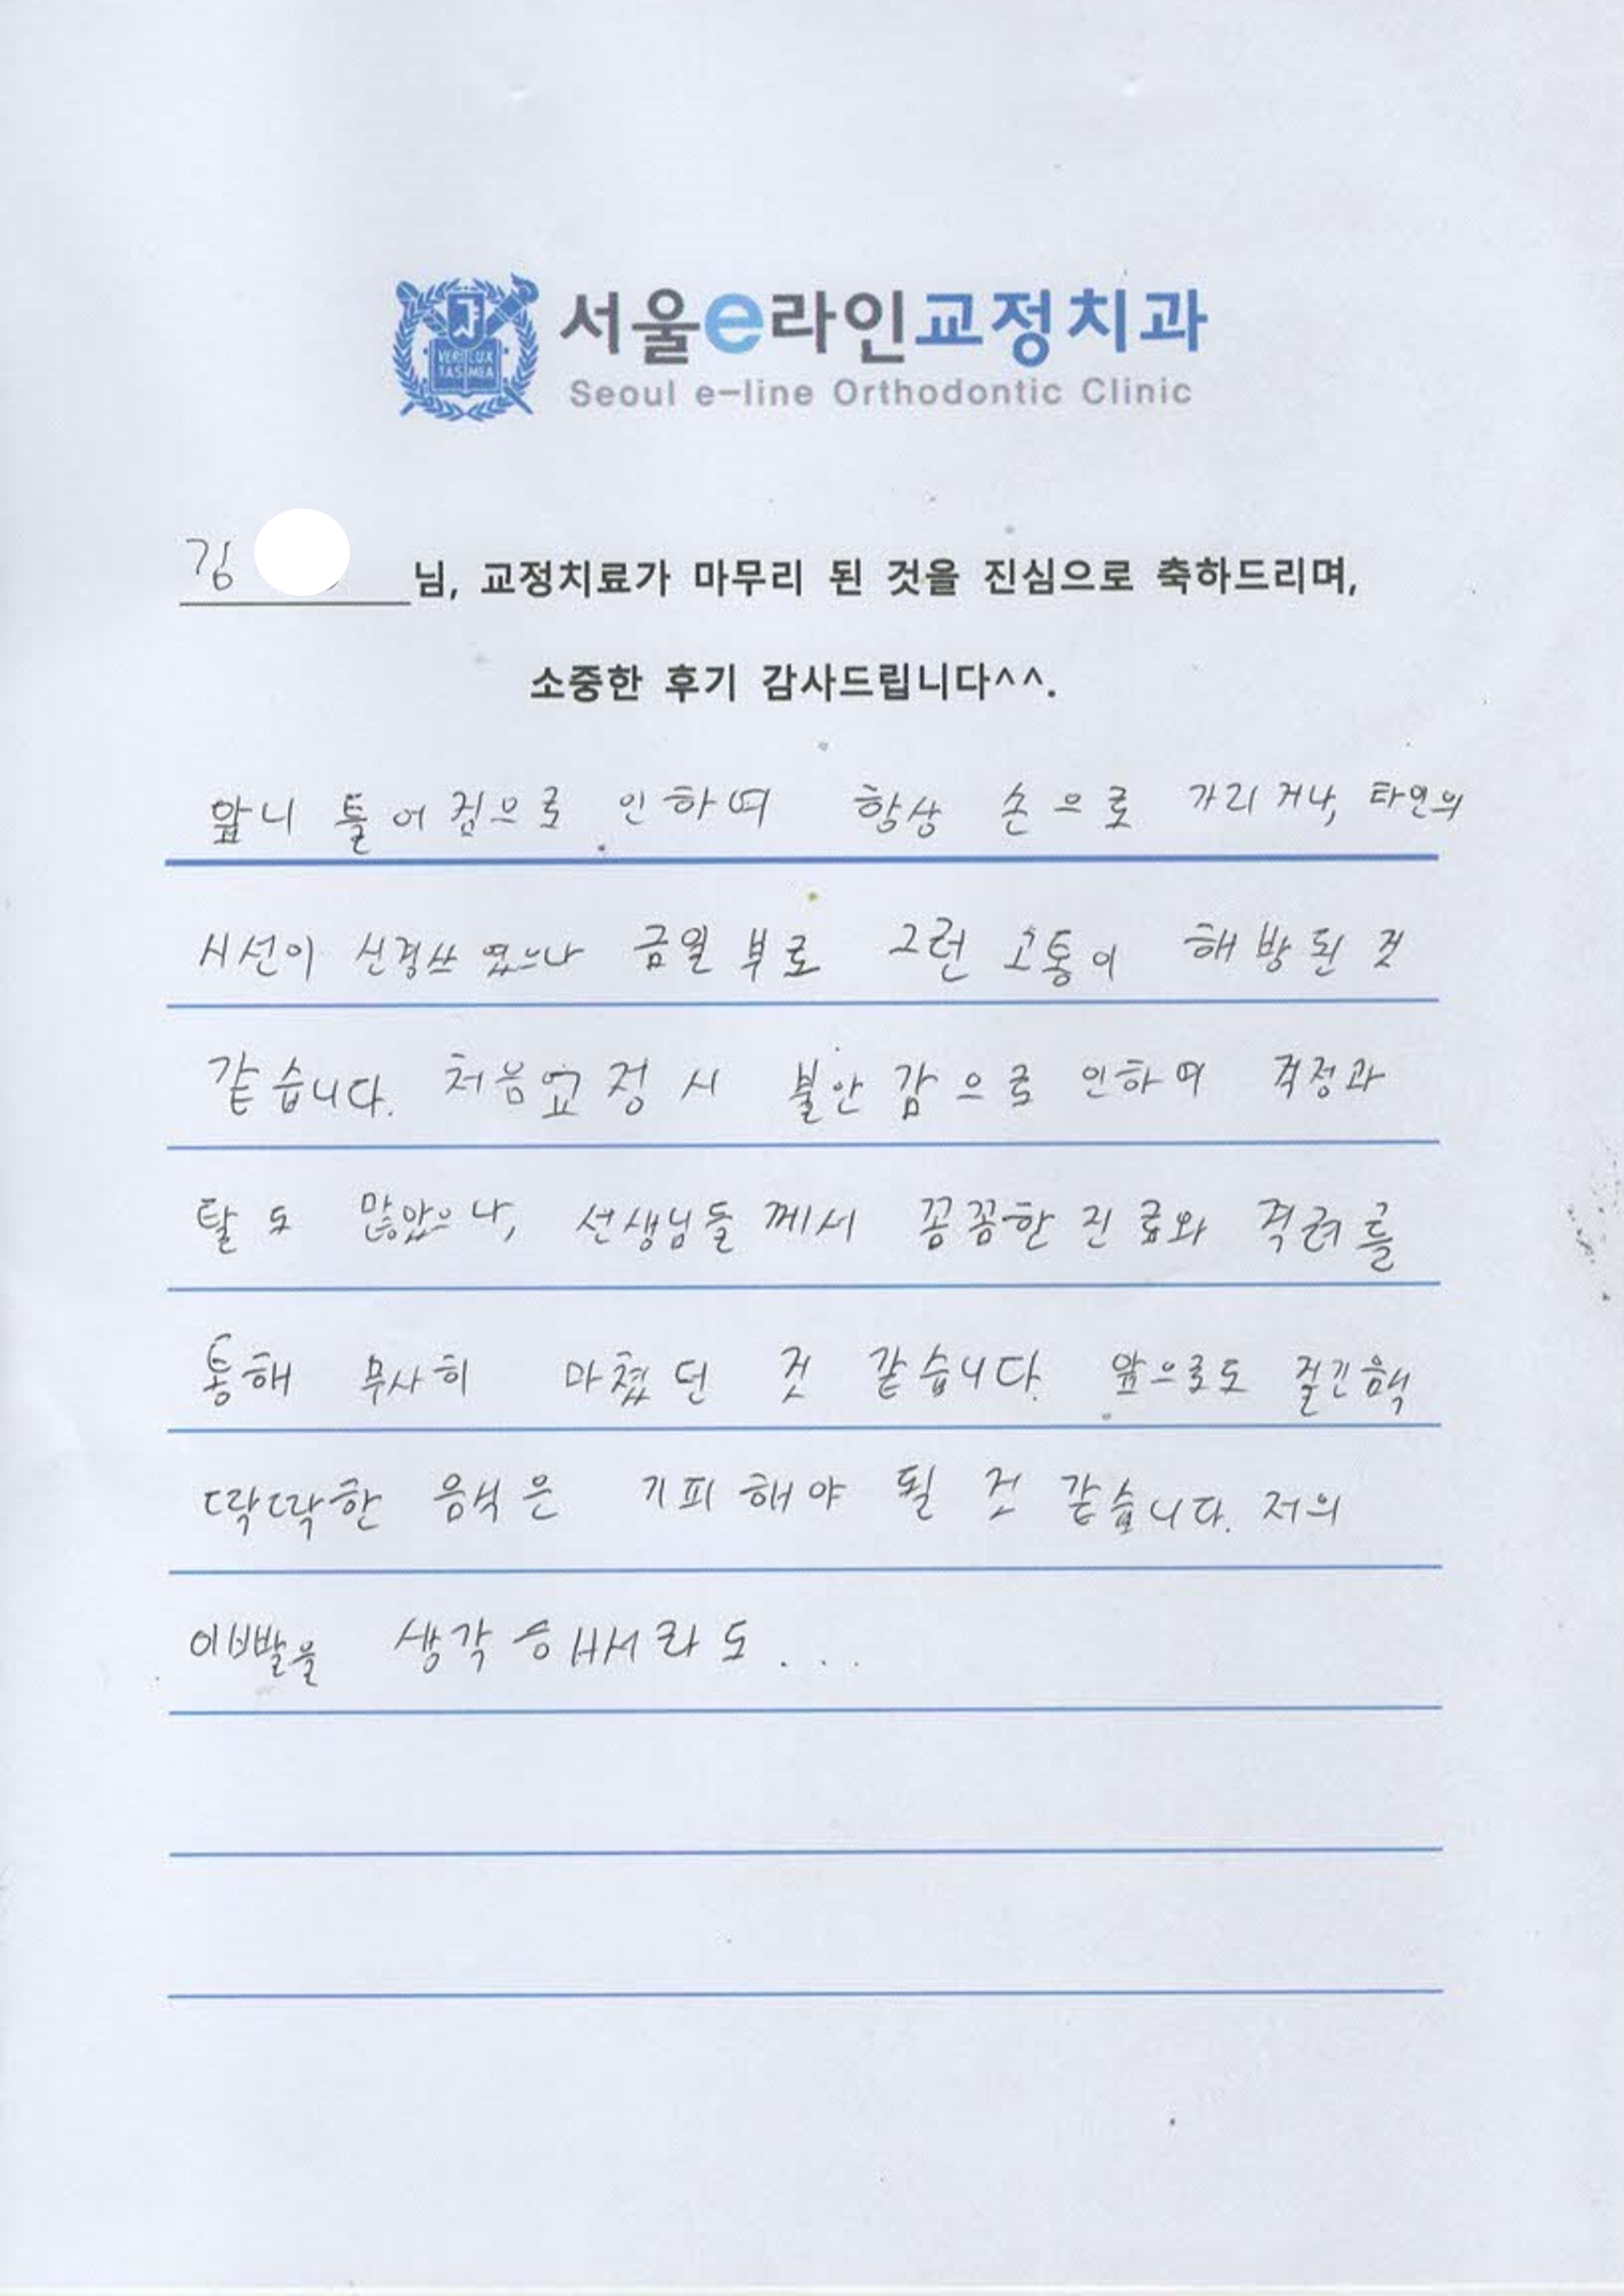 서울e라인교정치과
Seoul e-line Orthodontic Clinic
VERI LUX
TAS MEA
김 님, 교정치료가 마무리 된 것을 진심으로 축하드리며,
소중한 후기 감사드립니다^^.
앞니 틀어짐으로 인하여 항상 손으로 가리거나, 타인의
시선이 신경쓰였으나 금일부로 그런 고통이 해방된 것
같습니다. 처음 교정 시 불안감으로 인하여 걱정과
탈도 많았으나, 선생님들께서 꼼꼼한 진료와 격려를
통해 무사히 마쳤던 것 같습니다. 앞으로도 질긴음식
딱딱한 음식은 기피해야 될 것 같습니다. 저의
이빨을 생각해서라도...